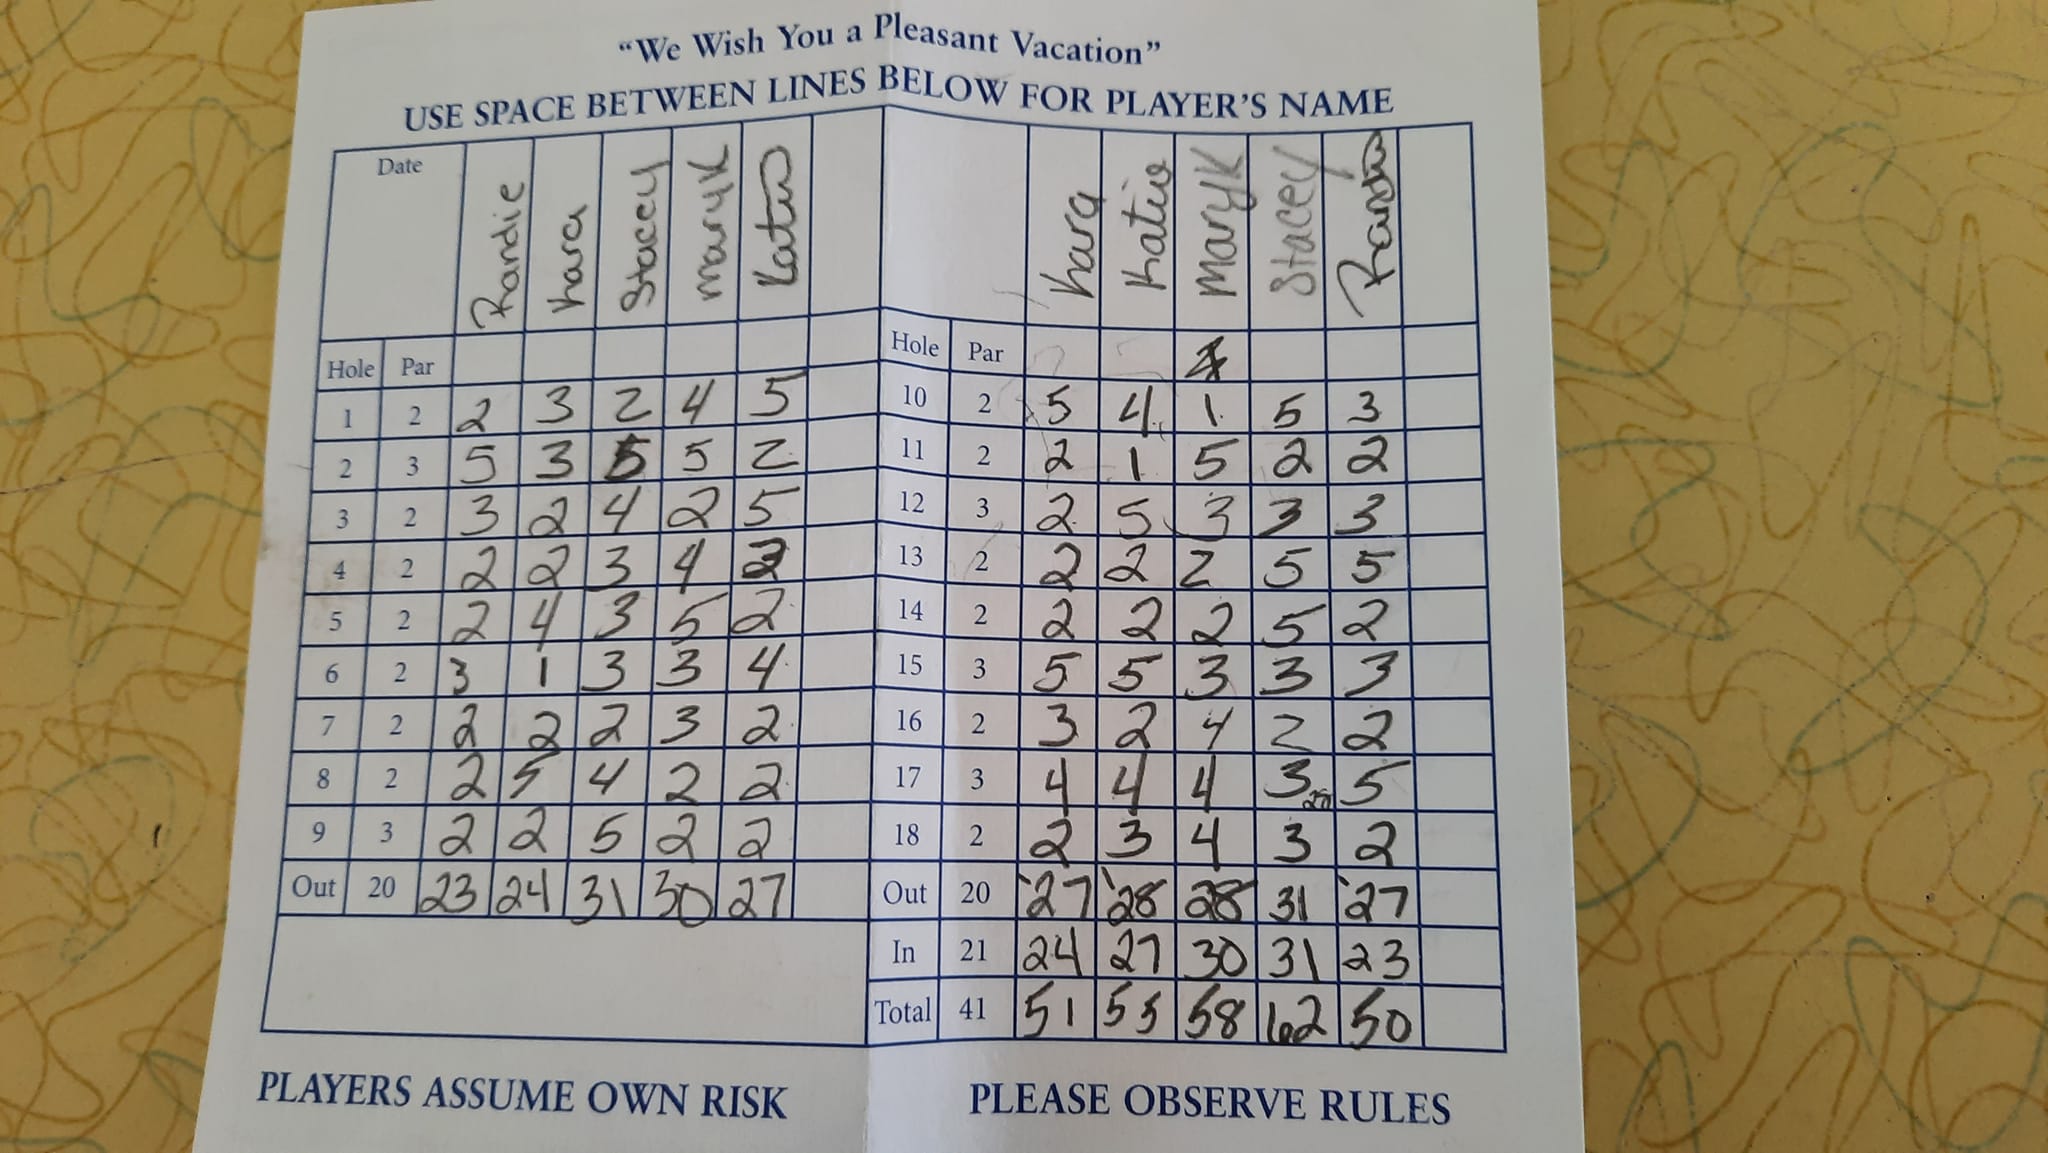 "We Wish You a Pleasant Vacation"
USE SPACE BETWEEN LINES BELOW FOR PLAYER'S NAME
Date Randie Kara Stacey MaryK Katie
Kara Katie MaryK Stacey Randie
Hole Par
1 2 2 3 2 4 5
2 3 5 3 5 5 2
3 2 3 2 4 2 5
4 2 2 2 3 4 3
5 2 2 4 3 5 2
6 2 3 1 3 3 4
7 2 2 2 2 3 2
8 2 2 5 4 2 2
9 3 2 2 5 2 2
Out 20 23 24 31 30 27
Hole Par
10 2 5 4 1 5 3
11 2 2 1 5 2 2
12 3 2 5 3 3 3
13 2 2 2 2 5 5
14 2 2 2 2 5 2
15 3 5 5 3 3 3
16 2 3 2 4 2 2
17 3 4 4 4 3 5
18 2 2 3 4 3 2
Out 20 27 28 28 31 27
In 21 24 27 30 31 23
Total 41 51 55 58 62 50
PLAYERS ASSUME OWN RISK
PLEASE OBSERVE RULES